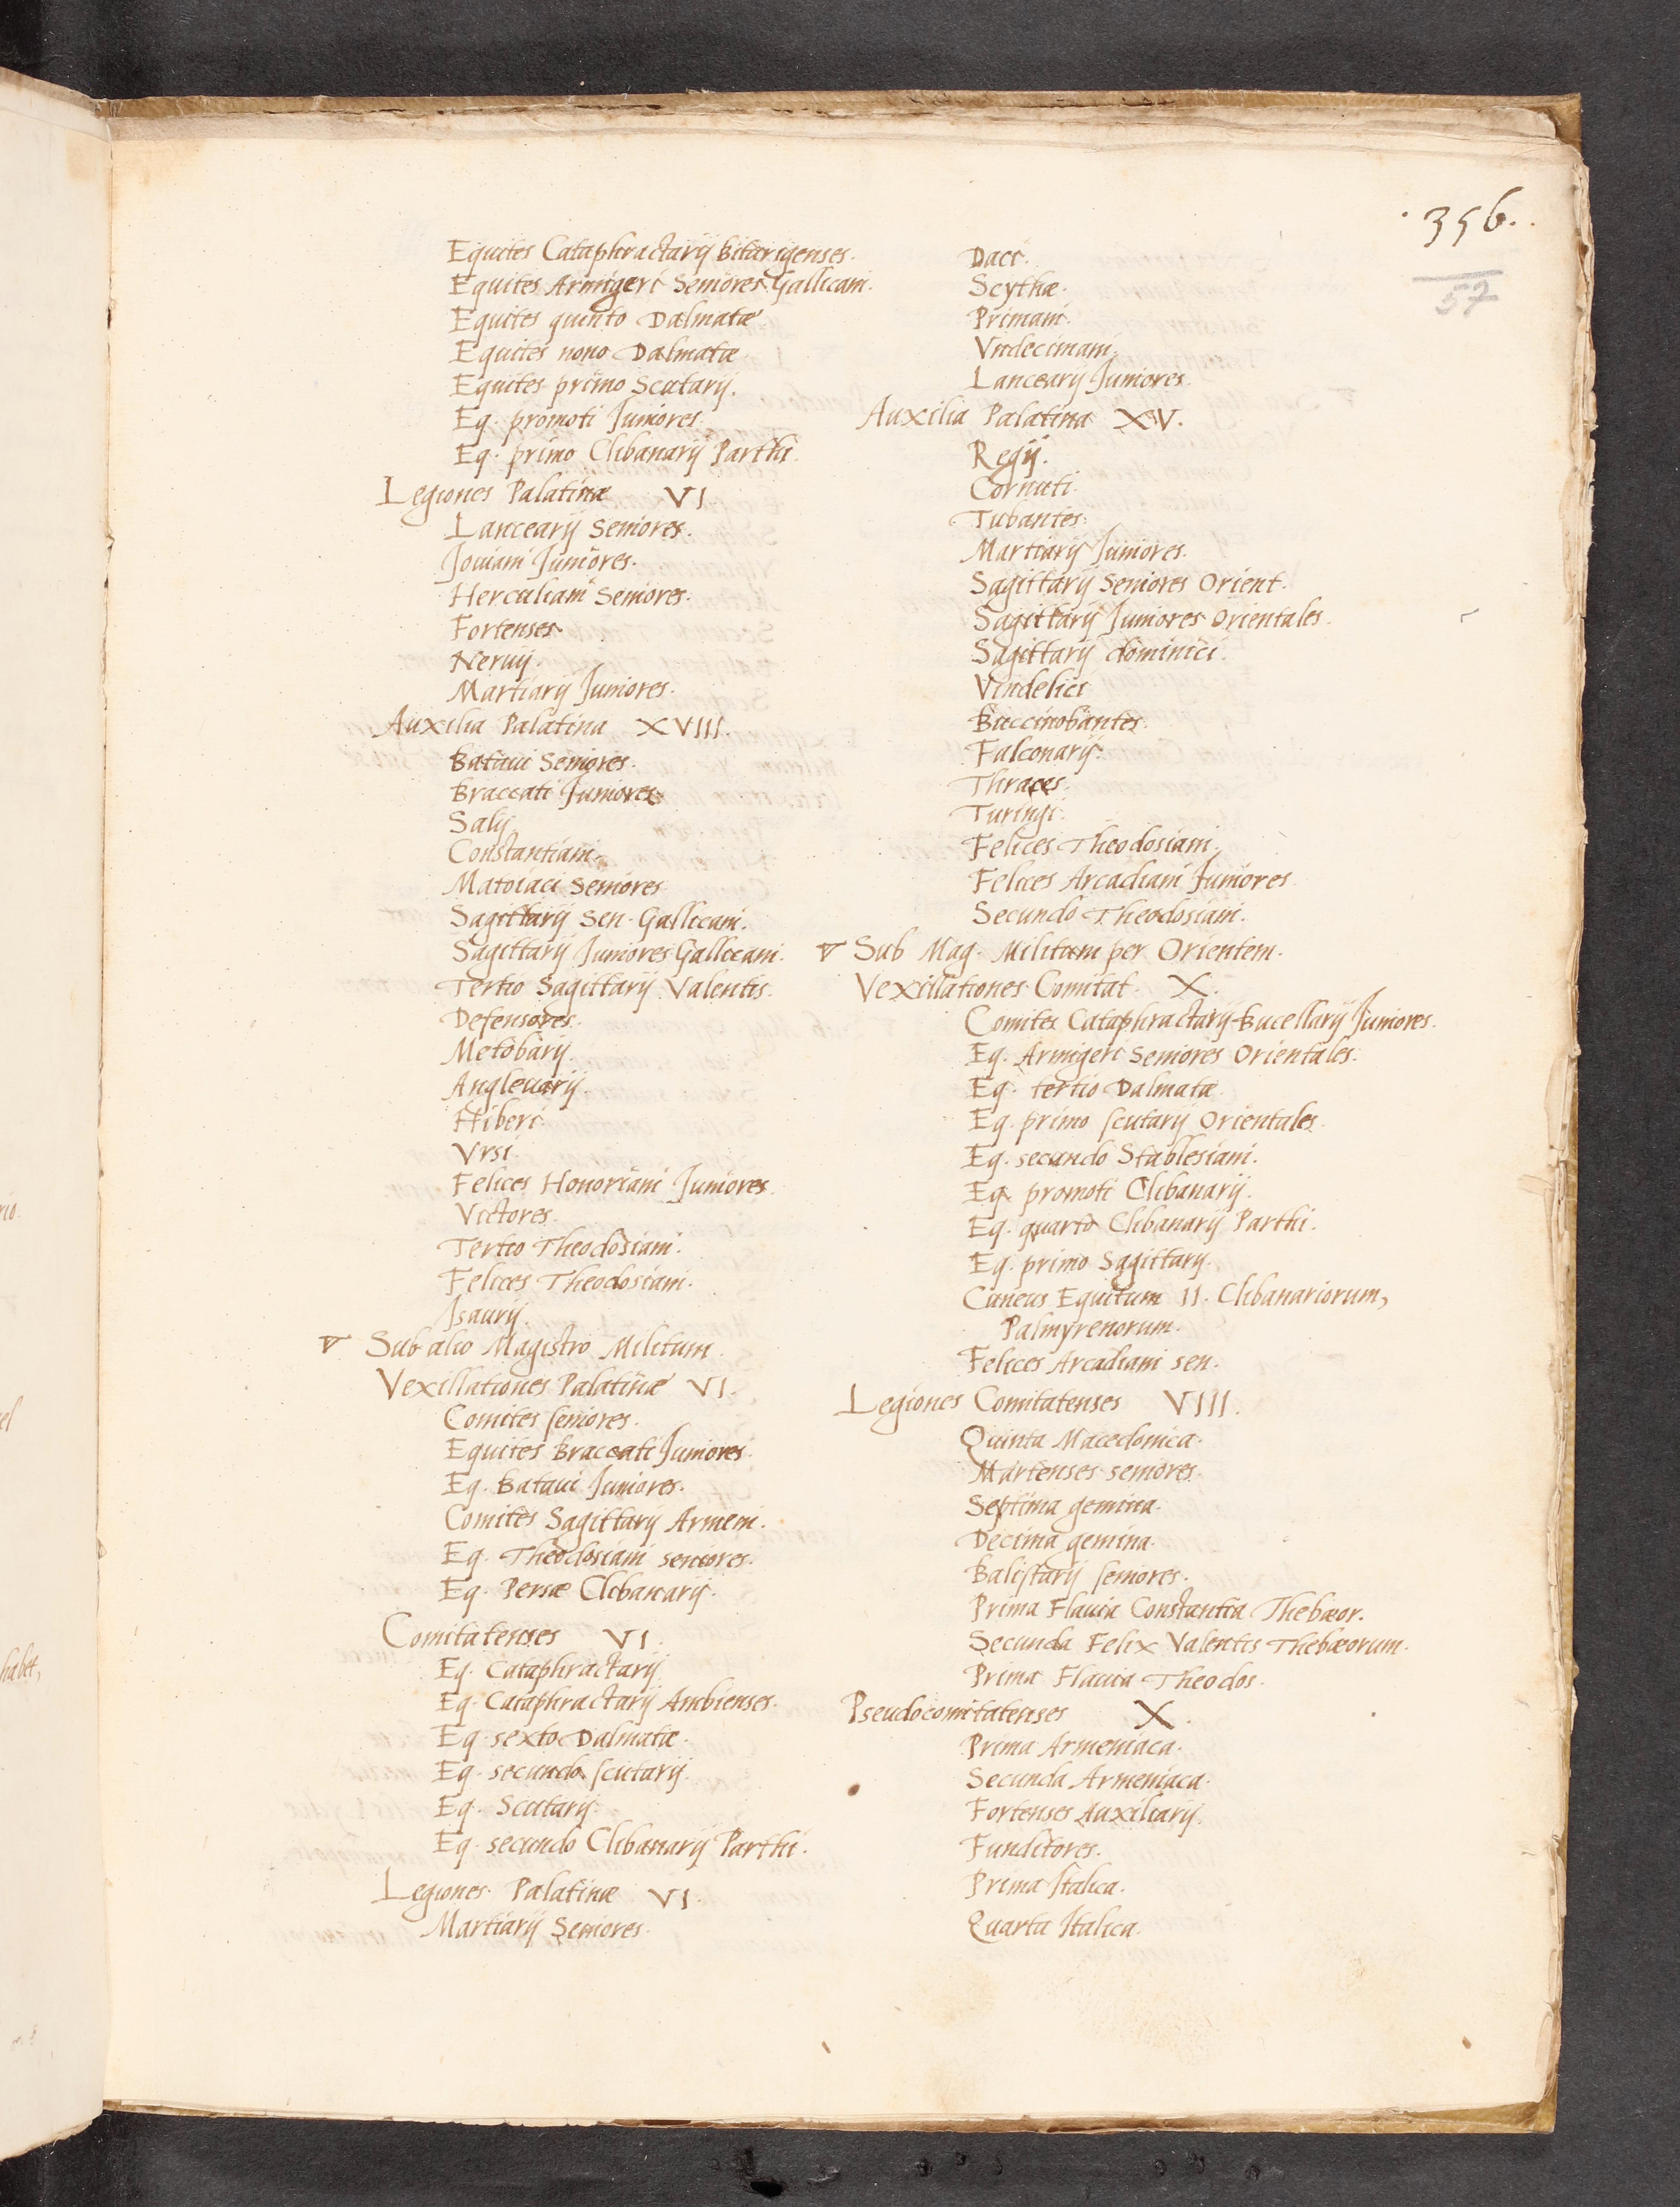 ·356·
57
Equites Cataphractarij Bitarigenses.
Equites Armigeri Seniores Gallicani.
Equites quinto Dalmatæ
Equites nono Dalmatæ
Equites primo Scutarij.
Eq. promoti Juniores.
Eq. primo Clibanarij Parthi
Legiones Palatinæ VI.
Lancearij Seniores.
Jouiani Juniores.
Herculiani Seniores.
Fortenses.
Neruij.
Martiarij Juniores.
Auxilia Palatina XVIII.
Bataui Seniores.
Braccati Juniores.
Salij
Constantiani.
Matoiaci Seniores
Sagittarij Sen. Gallicani.
Sagittarij Juniores Gallicani.
Tertio Sagittarij Valentis.
Defensores.
Metobarij.
Angleuarij.
Hiberi.
Vrsi.
Felices Honoriani Juniores
Victores.
Tertio Theodosiani.
Felices Theodosiani.
Isaurij.
Sub alio Magistro Militum.
Vexillationes Palatinæ VI.
Comites seniores.
Equites Braccati Juniores.
Eq. Bataui Juniores.
Comites Sagittarij Armeni.
Eq. Theodosiani seniores.
Eq. Persæ Clibanarij.
Comitatenses VI.
Eq. Cataphractarij
Eq. Cataphractarij Ambienses.
Eq. sexto Dalmatæ.
Eq. secundo scutarij.
Eq. Scutarij.
Eq. secundo Clibanarij Parthi.
Legiones Palatinæ VI.
Martiarij Seniores.
Daci.
Scythæ.
Primani.
Vndecimani.
Lancearij Juniores.
Auxilia Palatina XV.
Regij.
Cornuti.
Tubantes.
Martiarij Juniores.
Sagittarij Seniores Orient.
Sagittarij Juniores Orientales.
Sagittarij dominici.
Vindelici
Buccinobantes.
Falconarij.
Thraces.
Turingi.
Felices Theodosiani.
Felices Arcadiani Juniores.
Secundo Theodosiani.
Sub Mag. Militum per Orientem.
Vexillationes Comitat. X.
Comites Cataphractarij Bucellarij Juniores.
Eq. Armigeri Seniores Orientales.
Eq. tertio Dalmatæ
Eq. primo scutarij Orientales.
Eq. secundo Stablesiani.
Eq. promoti Clibanarij.
Eq. quarto Clibanarij Parthi.
Eq. primo Sagittarij.
Cuneus Equitum II. Clibanariorum,
Palmyrenorum.
Felices Arcadiani sen.
Legiones Comitatenses VIII.
Quinta Macedonica.
Martenses seniores.
Septima gemina.
Decima gemina.
Balistarij seniores.
Prima Flauia Constantia Thebæor.
Secunda Felix Valentis Thebæorum.
Prima Flauia Theodos.
Pseudocomitatenses X.
Prima Armeniaca.
Secunda Armeniaca.
Fortenses Auxiliarij.
Funditores.
Prima Italica.
Quarta Italica.